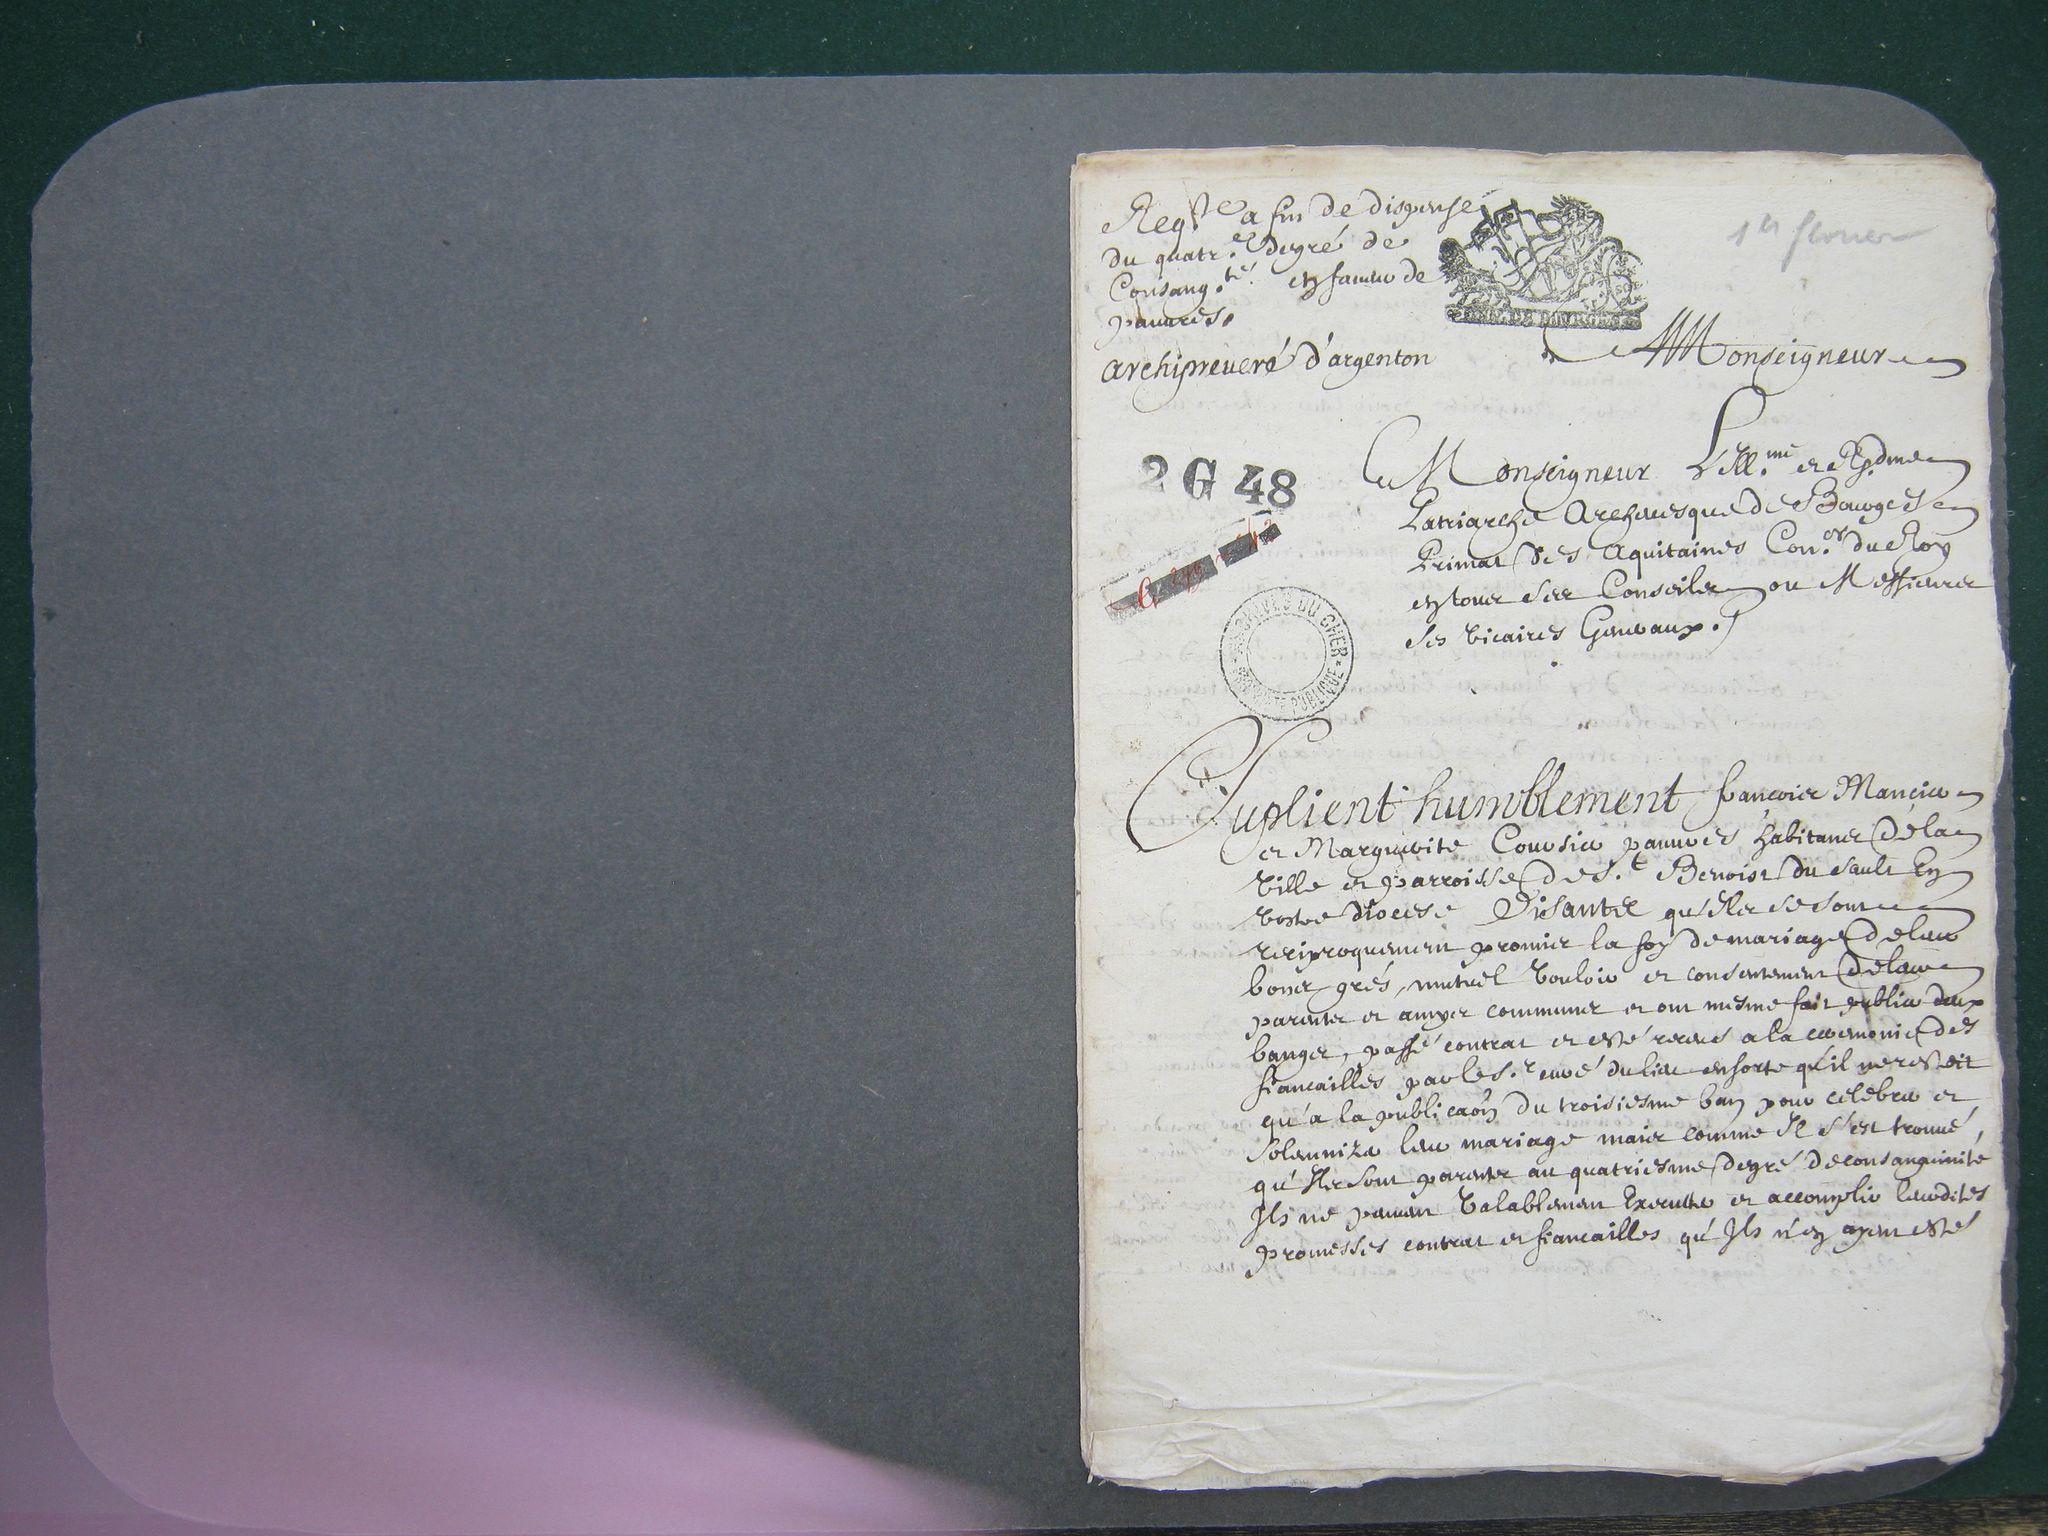 Req.te a fin de dispense
du quatr.e degré de
Consang.té en faueur de
pauures.
archipreueré d'argenton
1er feurier
Monseigneur
2 G 48
Monseigneur L'Ill.me et R.dme
Patriarche Archeuesque de Bourges
Primat des Aquitaines Con.er du Roy
en tous ses Conseils ou Messieurs
ses Vicaires Generaux.
ARCHIVES DU CHER
PROPRIÉTÉ PUBLIQUE
Suplient humblement francois Mancier
et Marguerite Coursier pauures habitans de la
Ville et parroisse de S.t Benoist du Sault En
Vostre diocese Disants qu'Ils se sont
reciproquement promis la foy de mariage de leur
bons grés, mutuel Vouloir et consentement de leurs
parents et amys communs et ont mesme fait publier deux
bangs, passé contrat et esté receus a la ceremonie des
fiancailles par le S.r curé du lieu ensorte qu'il ne restoit
qu'a la publicaõn du troisiesme ban pour celebrer et
Solemnizer leur mariage mais comme Il s'est trouué
qu'Ils sont parents au quatriesme degré de consanguinité
Ils ne peuuent Valablement Executter et accomplir leursdites
promesses contrat et fiancailles qu'Ils n'en ayent esté